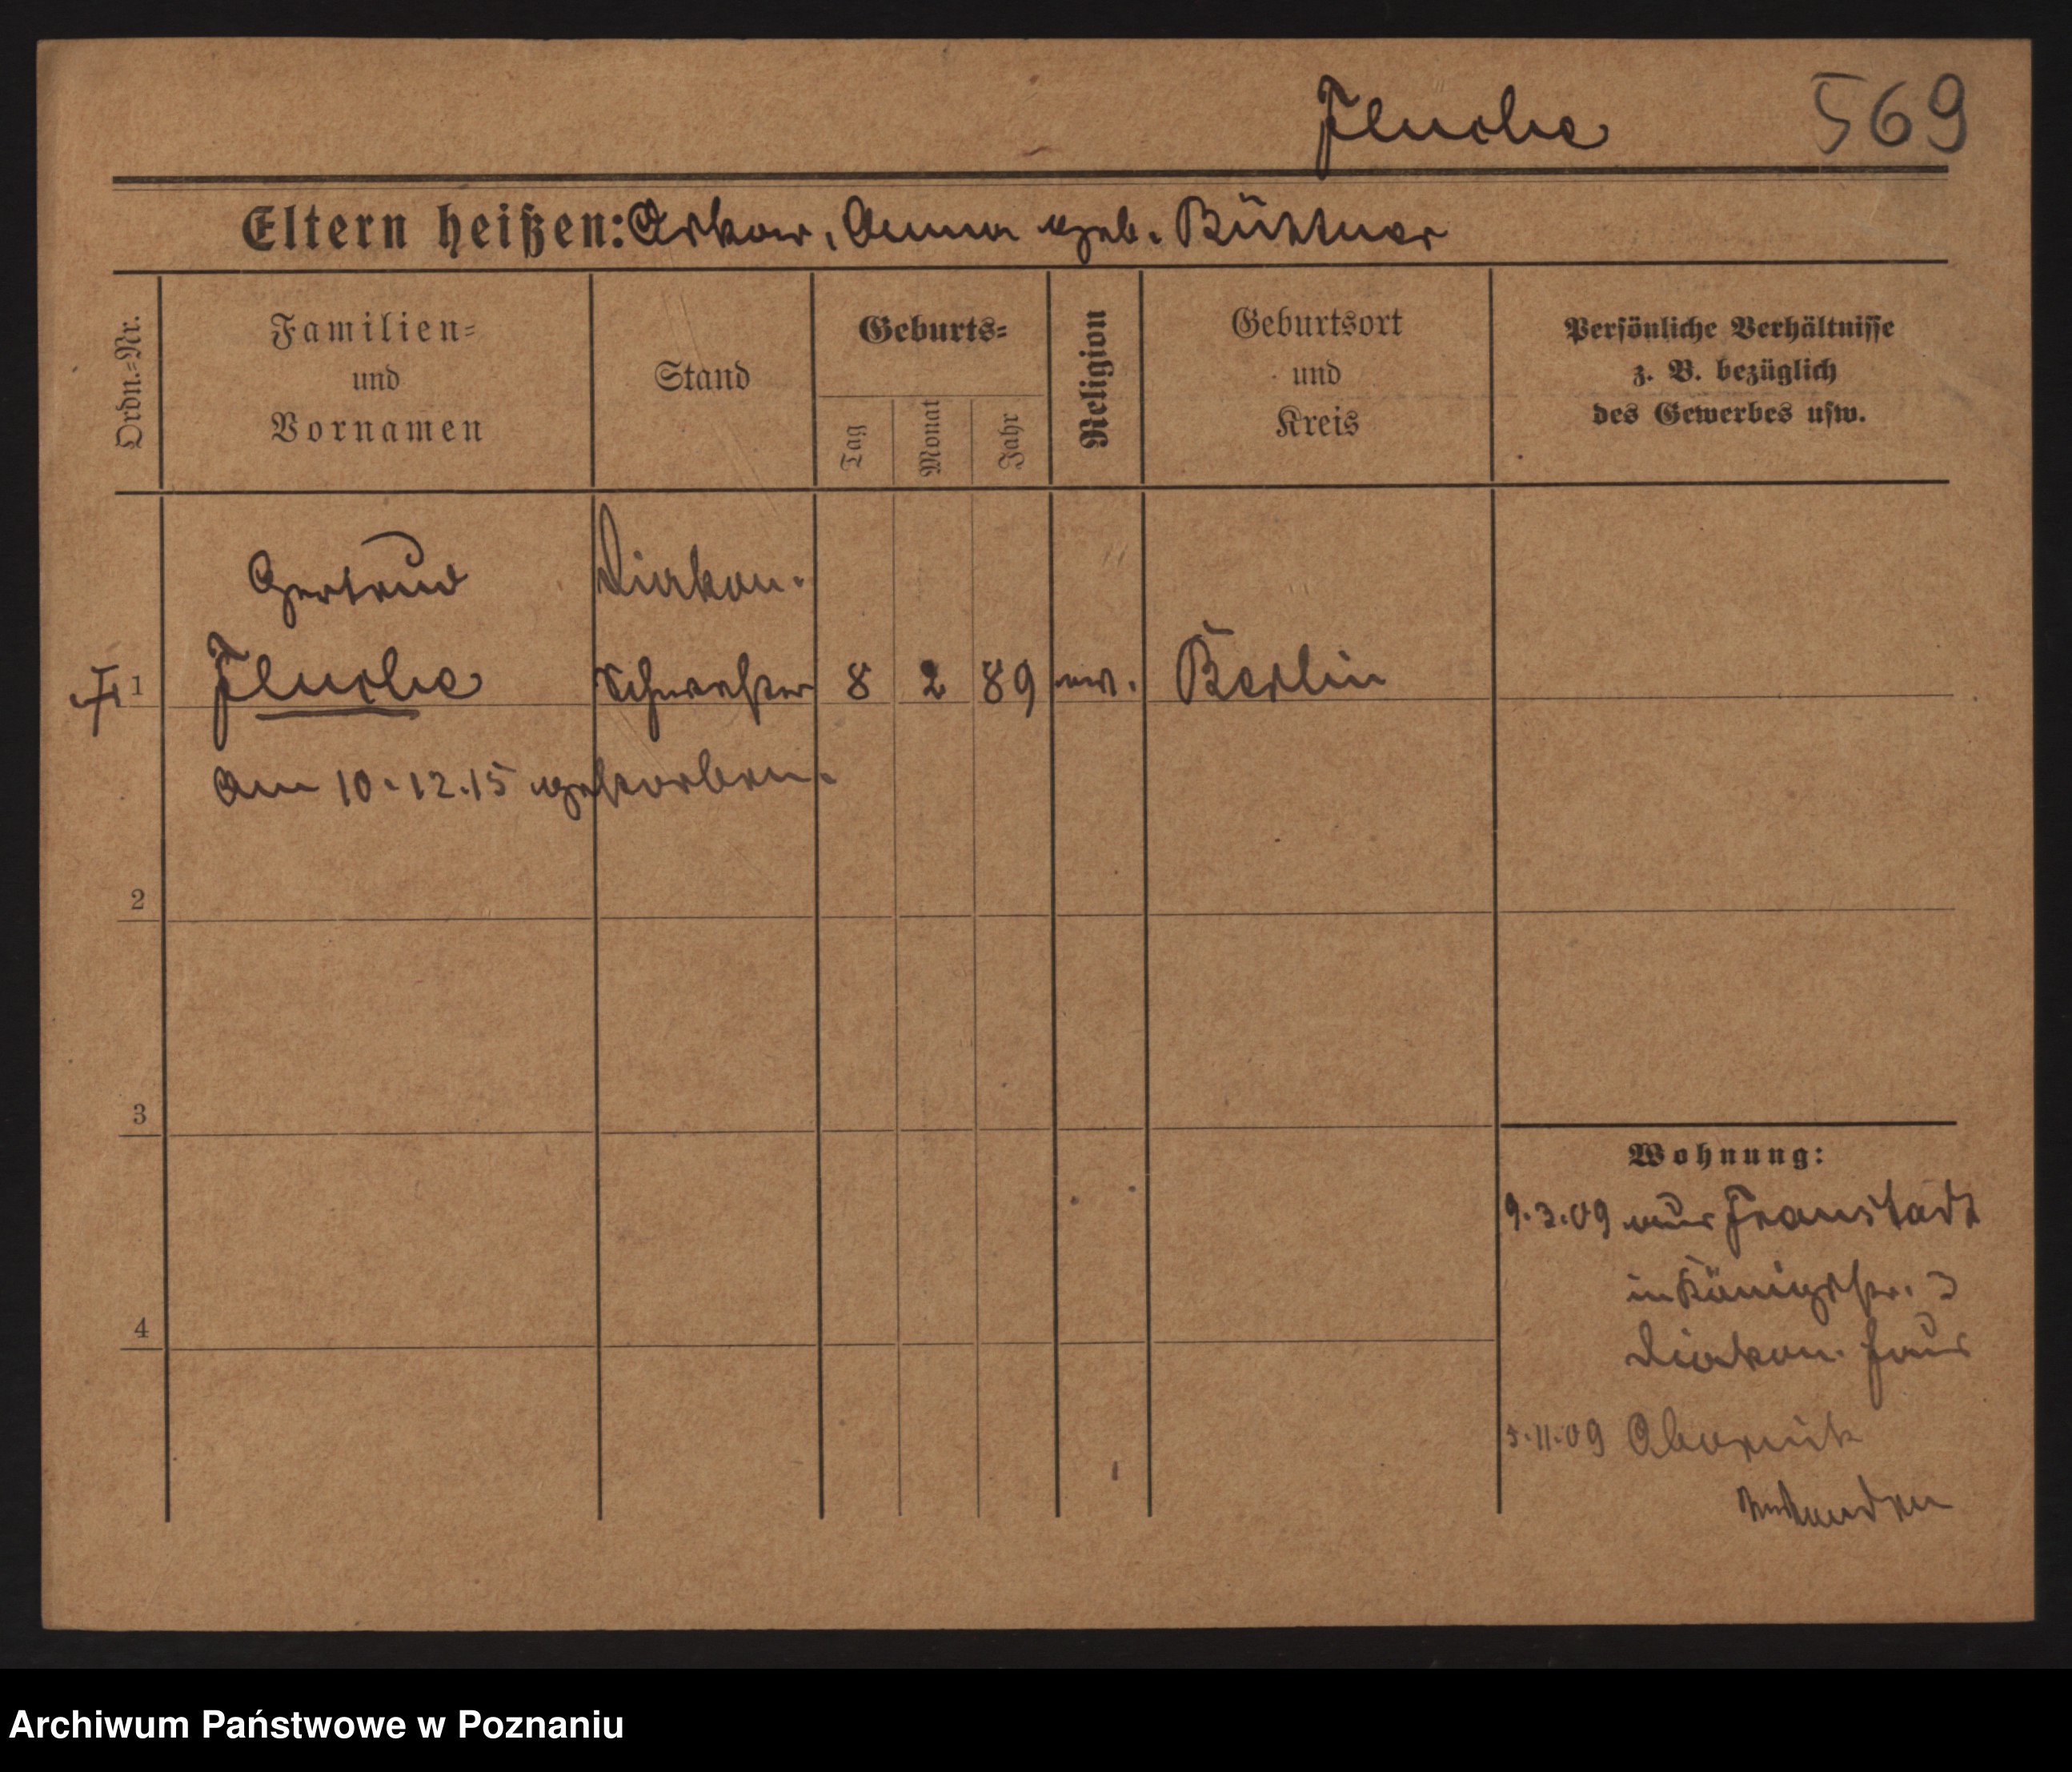 Flucke 569
Eltern heißen: Oskar, Anna geb. Büttner
Ordn.=Nr.
Familien=
und
Vornamen
Stand
Geburts=
Tag
Monat
Jahr
Religion
Geburtsort
und
Kreis
Persönliche Verhältnisse
z. B. bezüglich
des Gewerbes usw.
Gertrud Diakon.
1 Schwester 8 2 89 ev. Berlin
Am 10.12.15 gestorben.
2
3
4
Wohnung:
9.3.09 aus Fraustadt
in Königstr. 3
Diakon. Haus
5.11.09 Obornik
Archiwum Państwowe w Poznaniu